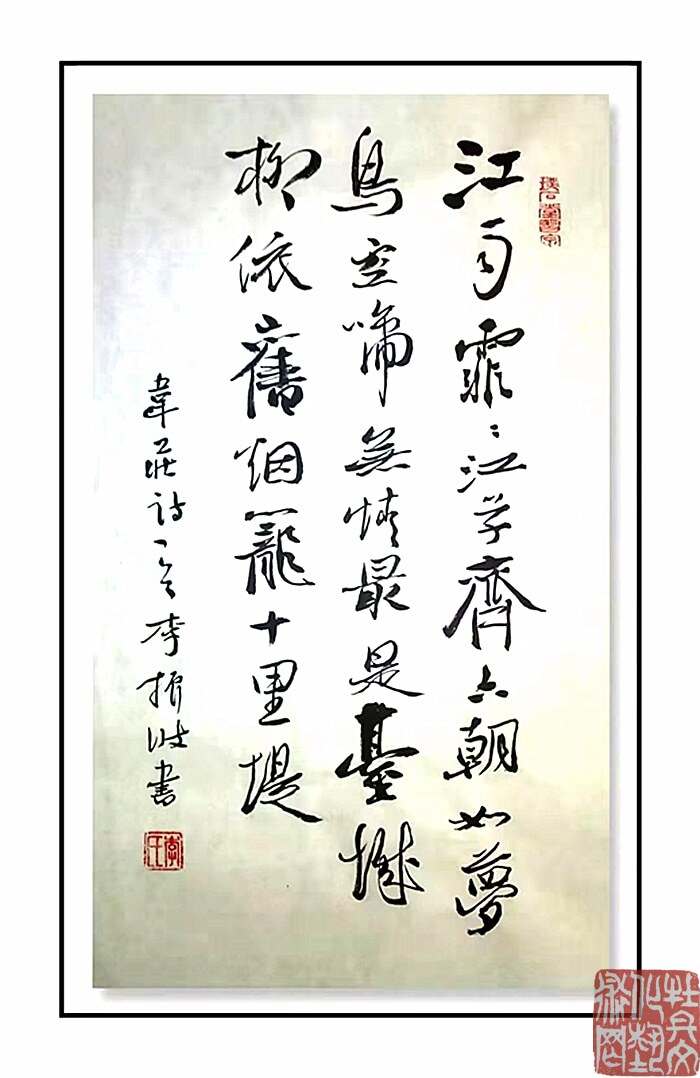 江雨霏〻江草齊六朝如夢
鳥空啼無情最是臺城
柳依舊烟籠十里堤
韋莊詩一首李振波書